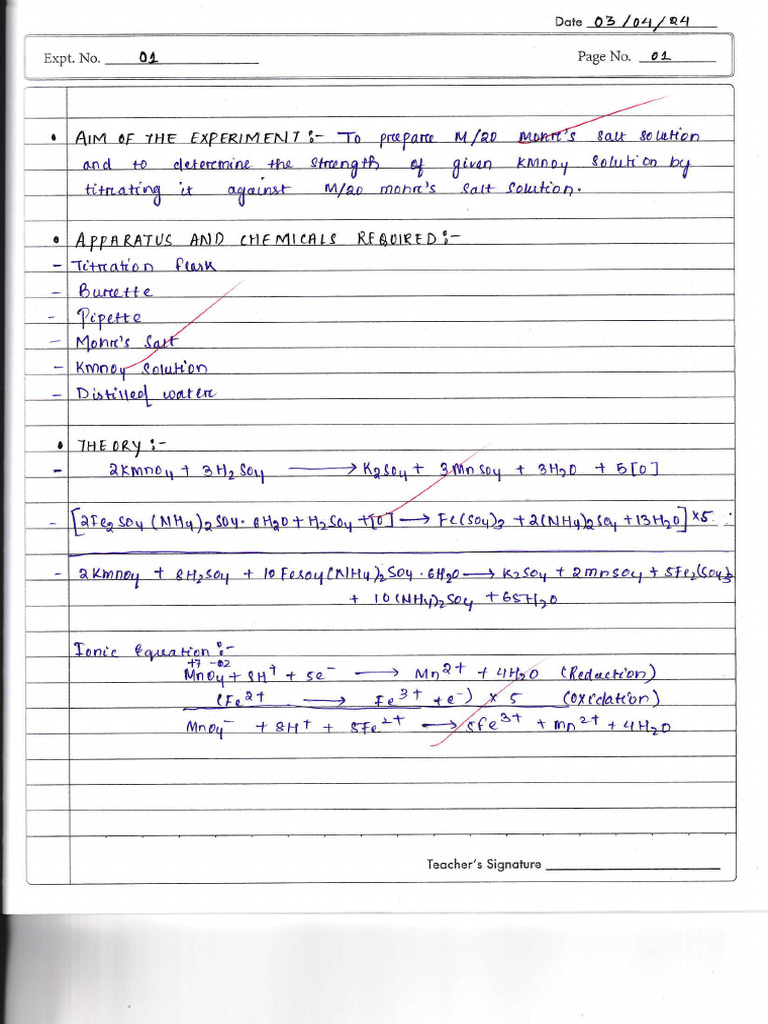 Date 03/04/24
Expt. No. 01 Page No. 01
• AIM OF THE EXPERIMENT:- To prepare M/20 Mohr's salt solution
and to determine the strength of given KMnO4 solution by
titrating it against M/20 mohr's salt solution.
• APPARATUS AND CHEMICALS REQUIRED:-
- Titration flask
- Burette
- Pipette
- Mohr's Salt
- KMnO4 Solution
- Distilled water
• THEORY:-
- 2KMnO4 + 3H2SO4 ⟶ K2SO4 + 3MnSO4 + 3H2O + 5[O]
- [2Fe2SO4(NH4)2SO4·6H2O + H2SO4 + [O] ⟶ Fe(SO4)3 + 2(NH4)2SO4 + 13H2O] × 5
- 2KMnO4 + 8H2SO4 + 10FeSO4(NH4)2SO4·6H2O ⟶ K2SO4 + 2MnSO4 + 5Fe2(SO4)3
+ 10(NH4)2SO4 + 65H2O
Ionic Equation:-
+7 -02
MnO4 + 8H+ + 5e- ⟶ Mn2+ + 4H2O (Reduction)
(Fe2+ ⟶ Fe3+ + e-) × 5 (Oxidation)
MnO4- + 8H+ + 5Fe2+ ⟶ 5Fe3+ + Mn2+ + 4H2O
Teacher's Signature